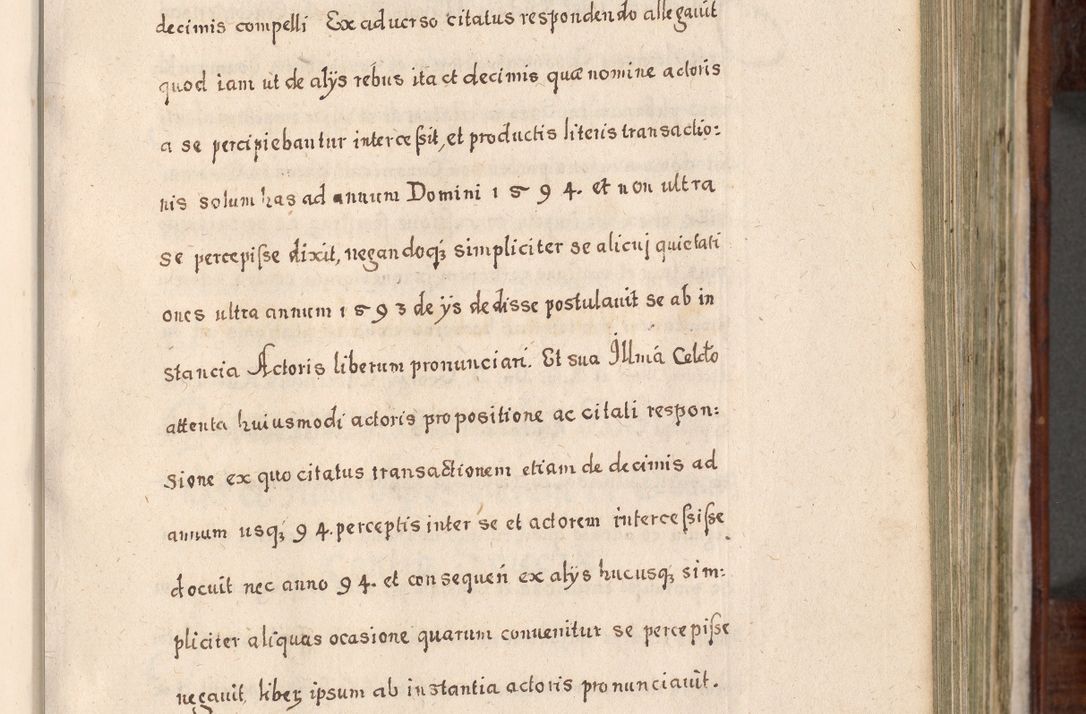 decimis compelli Ex aduerso citatus respondendo allegauit
quod iam ut de alÿs rebus ita et decimis quæ nomine actoris
a se percipiebantur intercessit, et productis literis transactio:
nis solum has ad annum Domini 1594. et non ultra
se percepisse dixit, negandoq; simpliciter se alicuj quietati
ones ultra annum 1593 de ÿs dedisse postulauit se ab in
stancia Actoris liberum pronunciari. Et sua Illmá Celdo
attenta huiusmodi actoris propositione ac citati respon:
sione ex quo citatus transactionem etiam de decimis ad
annum usq; 94. perceptis inter se et actorem intercessisse
docuit nec anno 94. et consequeń ex alÿs hucusq; sim:
pliciter aliquas ocasione quarum conuenitur se percepisse
negauit liber ipsum ab instantia actoris pronunciauit.